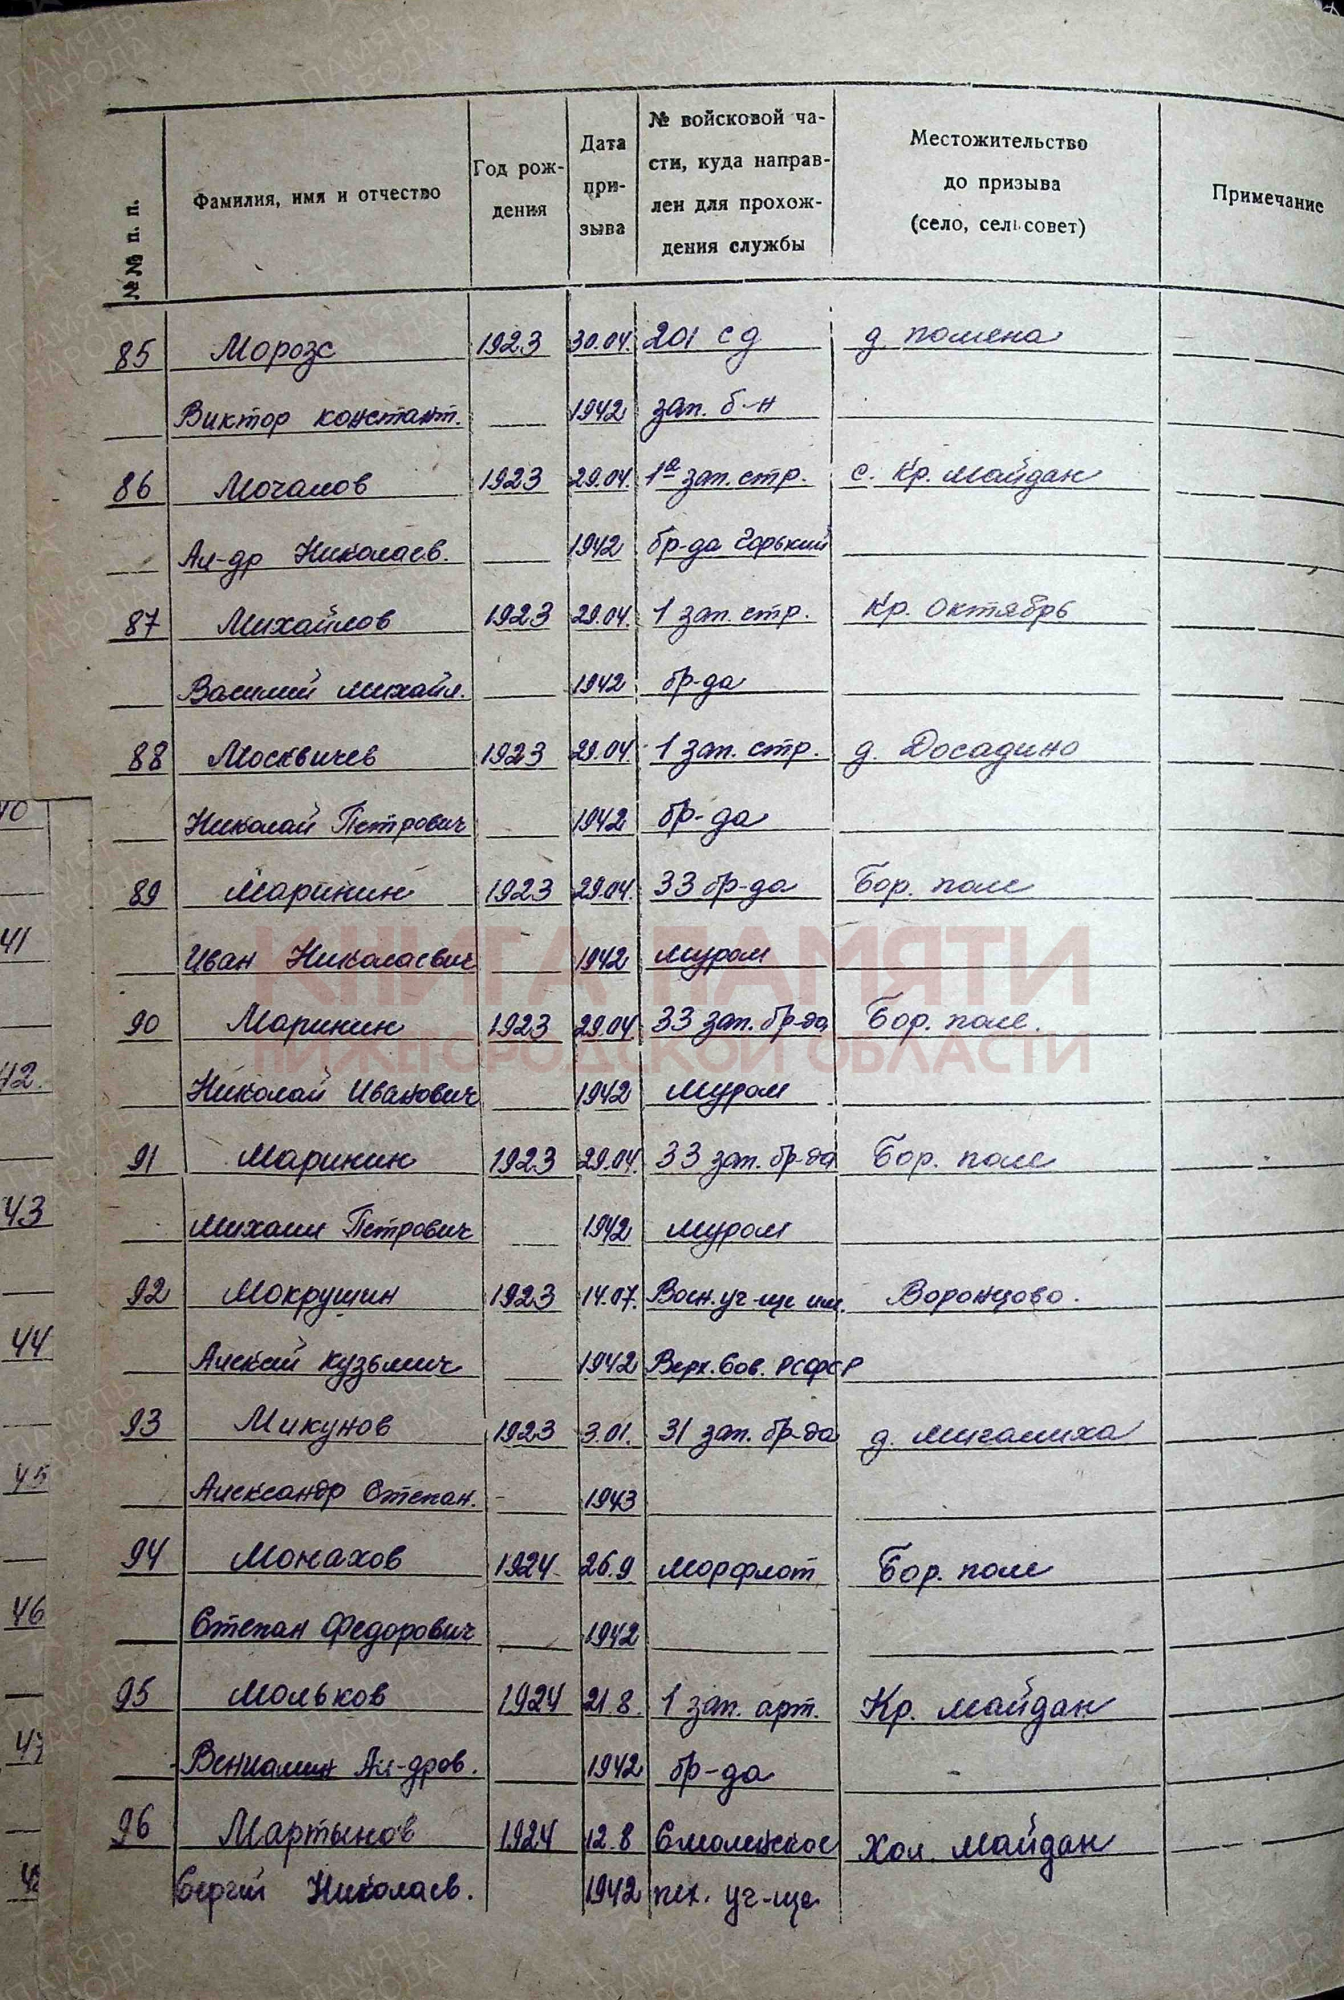 №№ п. п.
Фамилия, имя и отчество
Год рож-
дения
Дата
при-
зыва
№ войсковой ча-
сти, куда направ-
лен для прохож-
дения службы
Местожительство
до призыва
(село, сельсовет)
Примечание
85 Морозс 1923 30.04. 201 сд д. помена
Виктор констант. 1942 зап. б-н
86 Мочалов 1923 29.04. 1а зап. стр. с. Кр. Майдан
Ал-др Николаев. 1942 бр-да Горький
87 Михайлов 1923 29.04. 1 зап. стр. Кр. Октябрь
Василий Михайл. 1942 бр-да
88 Москвичев 1923 29.04. 1 зап. стр. д. Досадино
Николай Петрович 1942 бр-да
89 Маринин 1923 29.04. 33 бр-да Бор. поле
Иван Николаевич 1942 Муром
90 Маринин 1923 29.04 33 зап. бр-да Бор. поле.
Николай Иванович 1942 Муром
91 Маринин 1923 29.04. 33 зап. бр-да Бор. поле
Михаил Петрович 1942 Муром
92 Мокрушин 1923 14.07. Воен. уч-ще им. Воронцово.
Алексей Кузьмич 1942 Верх. Сов. РСФСР
93 Микунов 1923 3.01. 31 зап. бр-да д. Мигалиха
Александр Степан. 1943
94 Монахов 1924 26.9 Морфлот Бор. поле
Степан Федорович 1942
95 Мольков 1924 21.8. 1 зап. арт. Кр. Майдан
Вениамин Ал-дров. 1942 бр-да
96 Мартынов 1924 12.8 Смоленское Хол. Майдан
Сергей Николаев. 1942 пех. уч-ще
40
41
42.
43
44
45
46
47
КНИГА ПАМЯТИ
НИЖЕГОРОДСКОЙ ОБЛАСТИ
ПАМЯТЬ
НАРОДА